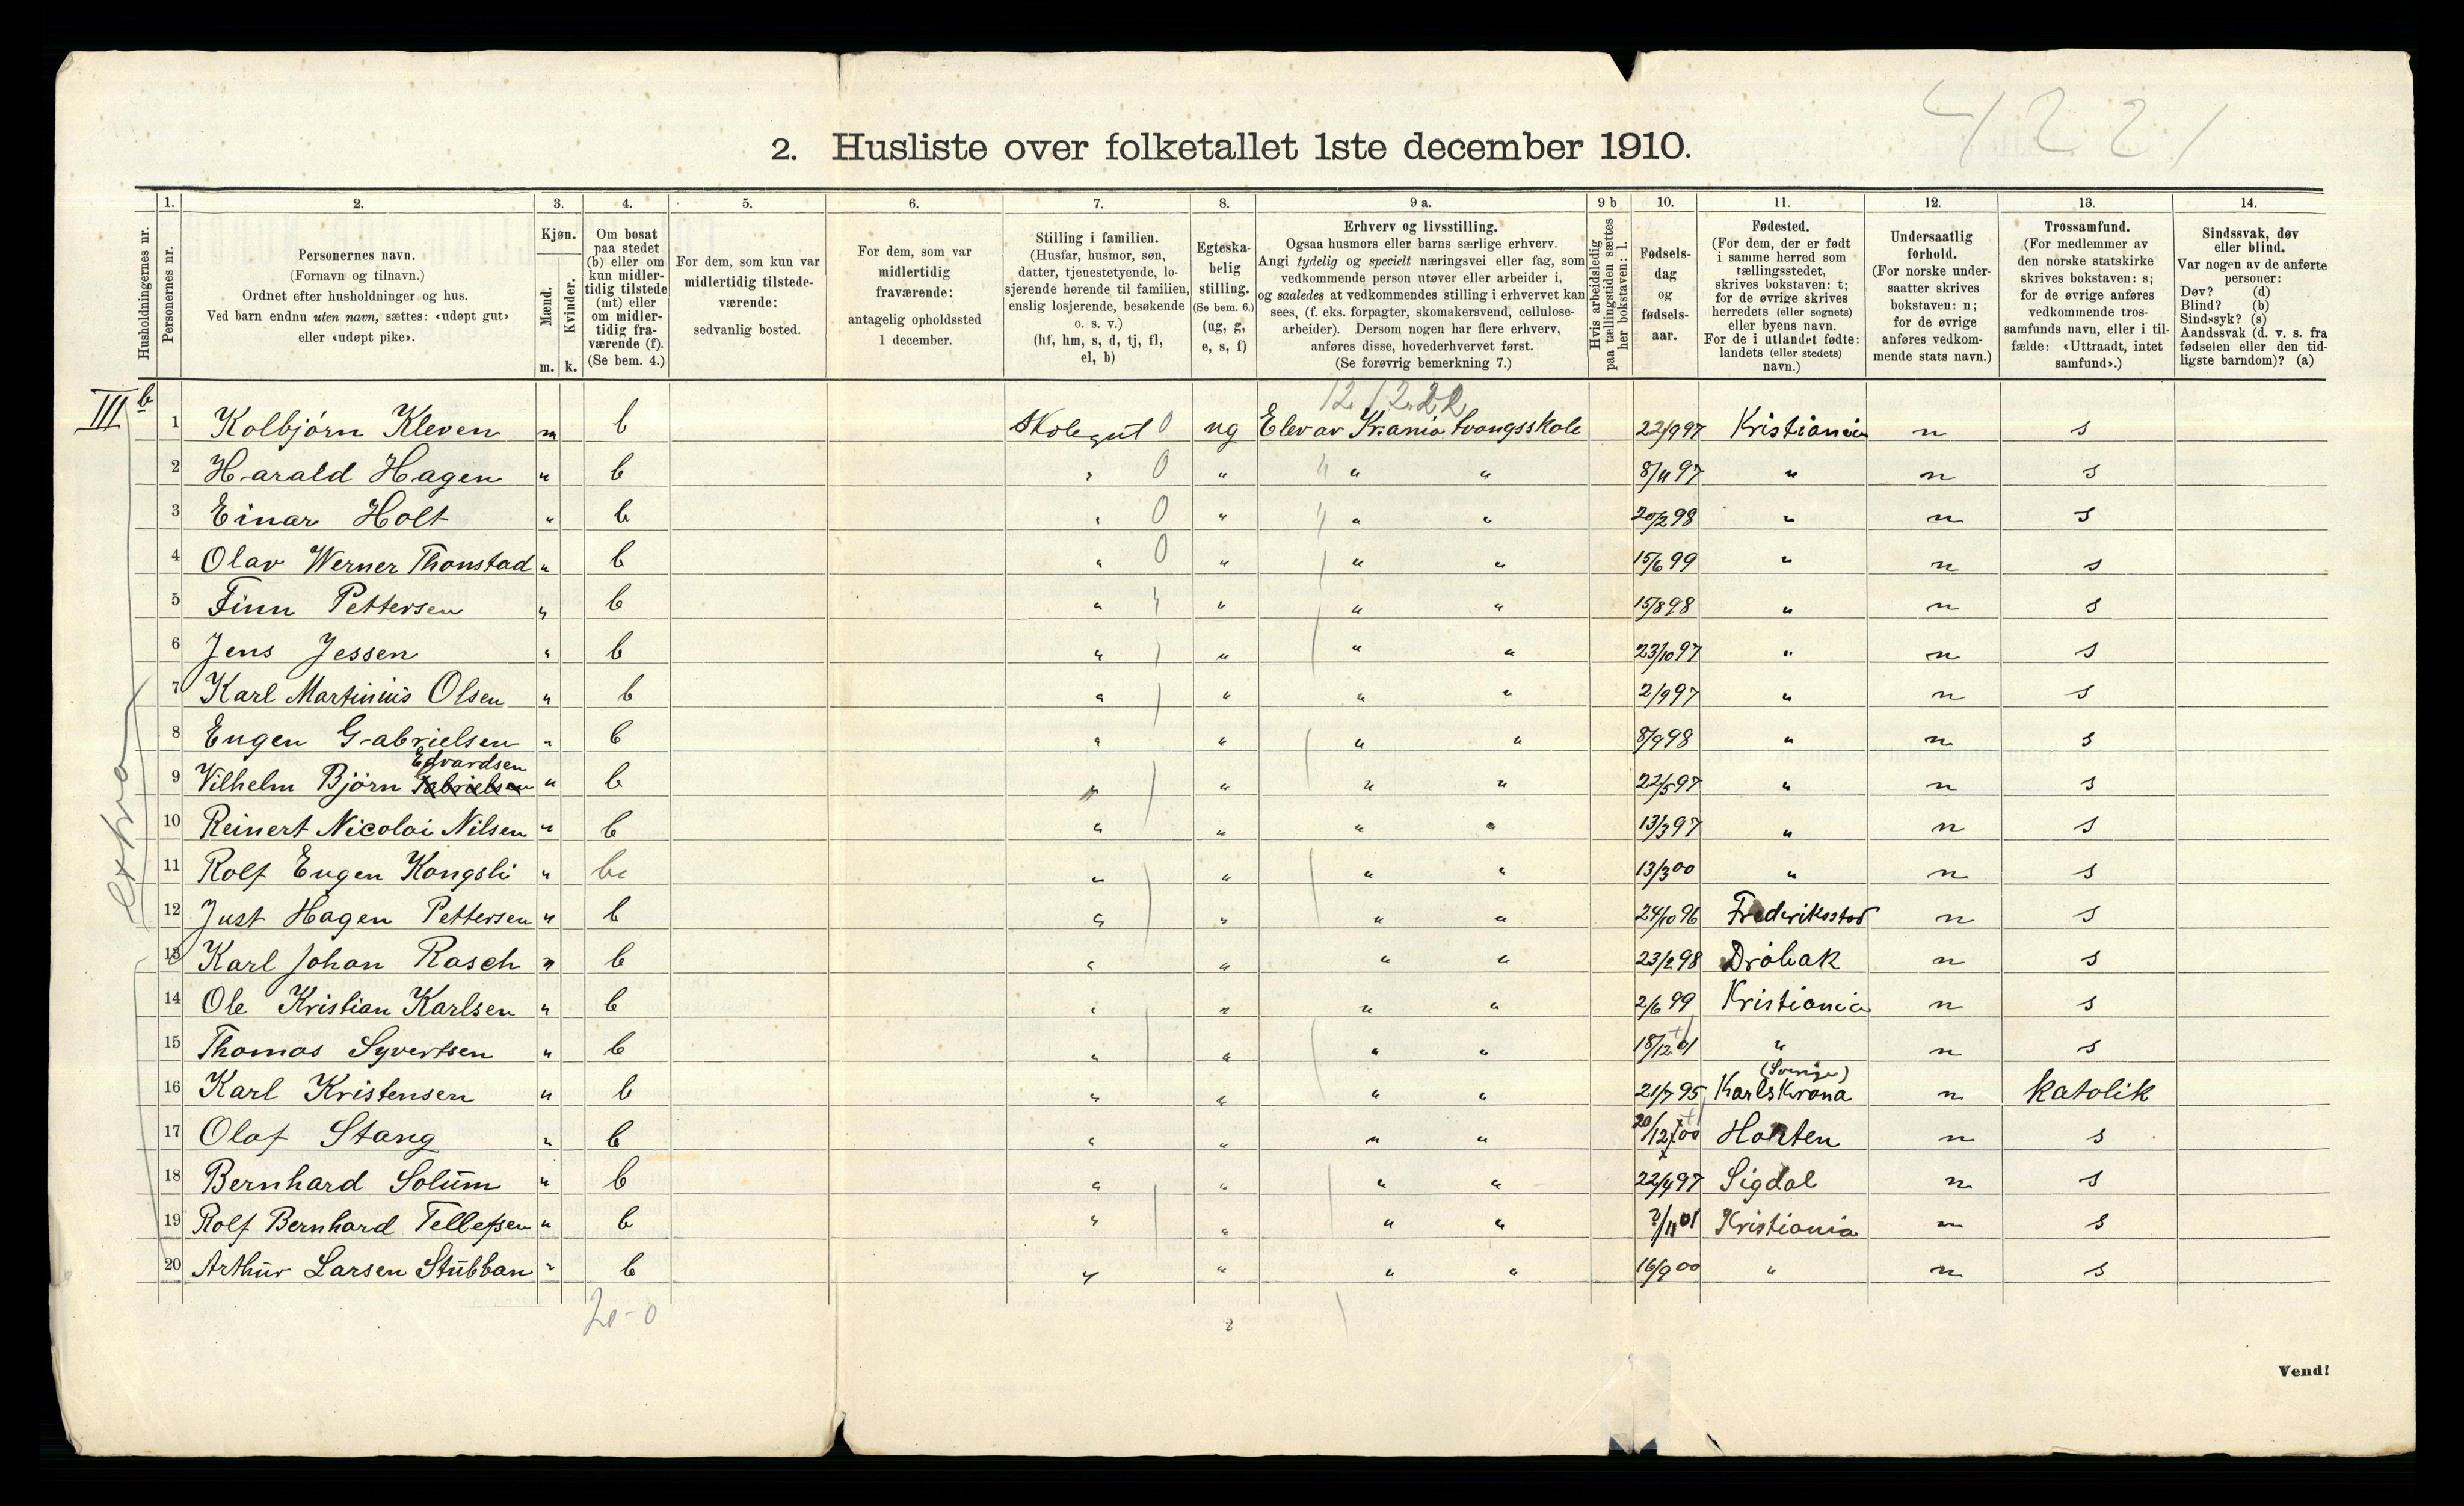 4221
2. Husliste over folketallet 1ste december 1910.
Husholdningernes nr.
1. Personernes nr.
2. Personernes navn.
(Fornavn og tilnavn.)
Ordnet efter husholdninger og hus.
Ved barn endnu uten navn, sættes: «udøpt gut»
eller «udøpt pike».
3. Kjøn.
Mænd. m.
Kvinder. k.
4. Om bosat
paa stedet
(b) eller om
kun midler-
tidig tilstede
(mt) eller
om midler-
tidig fra-
værende (f).
(Se bem. 4.)
5. For dem, som kun var
midlertidig tilstede-
værende:
sedvanlig bosted.
6. For dem, som var
midlertidig
fraværende:
antagelig opholdssted
1 december.
7. Stilling i familien.
(Husfar, husmor, søn,
datter, tjenestetyende, lo-
sjerende hørende til familien,
enslig losjerende, besøkende
o. s. v.)
(hf, hm, s, d, tj, fl,
el, b)
8. Egteska-
belig
stilling.
(Se bem. 6.)
(ug, g,
e, s, f)
9 a. Erhverv og livsstilling.
Ogsaa husmors eller barns særlige erhverv.
Angi tydelig og specielt næringsvei eller fag, som
vedkommende person utøver eller arbeider i,
og saaledes at vedkommendes stilling i erhvervet kan
sees, (f. eks. forpagter, skomakersvend, cellulose-
arbeider). Dersom nogen har flere erhverv,
anføres disse, hovederhvervet først.
(Se forøvrig bemerkning 7.)
9 b Hvis arbeidsledig
paa tællingstiden sættes
her bokstaven: l.
10. Fødsels-
dag
og
fødsels-
aar.
11. Fødested.
(For dem, der er født
i samme herred som
tællingsstedet,
skrives bokstaven: t;
for de øvrige skrives
herredets (eller sognets)
eller byens navn.
For de i utlandet fødte:
landets (eller stedets)
navn.)
12. Undersaatlig
forhold.
(For norske under-
saatter skrives
bokstaven: n;
for de øvrige
anføres vedkom-
mende stats navn.)
13. Trossamfund.
(For medlemmer av
den norske statskirke
skrives bokstaven: s;
for de øvrige anføres
vedkommende tros-
samfunds navn, eller i til-
fælde: «Uttraadt, intet
samfund».)
14. Sindssvak, døv
eller blind.
Var nogen av de anførte
personer:
Døv? (d)
Blind? (b)
Sindssyk? (s)
Aandssvak (d. v. s. fra
fødselen eller den tid-
ligste barndom)? (a)
III b
1 Kolbjørn Kleven m b Skolegut 0 ug Elev av Kr.ania tvangsskole 22/9 97 Kristiania n s
2 Harald Hagen " b " 0 " " " 8/11 97 " n s
3 Einar Holt " b " 0 " " " 20/2 98 " n s
4 Olav Werner Thonstad " b " 0 " " " 15/6 99 " n s
5 Finn Pettersen " b " " " " 15/8 98 " n s
6 Jens Jessen " b " " " " 23/10 97 " n s
7 Karl Martinius Olsen " b " " " " 2/9 97 " n s
8 Eugen Gabrielsen " b " " " " 8/9 98 " n s
9 Vilhelm Bjørn Gabrielsen Edvardsen " b " " " " 22/5 97 " n s
10 Reinert Nicolai Nilsen " b " " " " 13/3 97 " n s
11 Rolf Eugen Kongsli " b " " " " 13/3 00 " n s
12 Just Hagen Pettersen " b " " " " 24/10 96 Frederiksstad n s
13 Karl Johan Rasch " b " " " " 23/2 98 Drøbak n s
14 Ole Kristian Karlsen " b " " " " 2/6 99 Kristiania n s
15 Thomas Syvertsen " b " " " " 18/12 01 " n s
16 Karl Kristensen " b " " " " 21/7 95 Karlskrona (Sverige) n katolik
17 Olaf Stang " b " " " " 20/12 00 Horten n s
18 Bernhard Solum " b " " " " 22/4 97 Sigdal n s
19 Rolf Bernhard Tellefsen " b " " " " /11 01 Kristiania n s
20 Arthur Larsen Stubban " b " " " " 16/9 00 " n s
Extra
20-0
2
Vend!